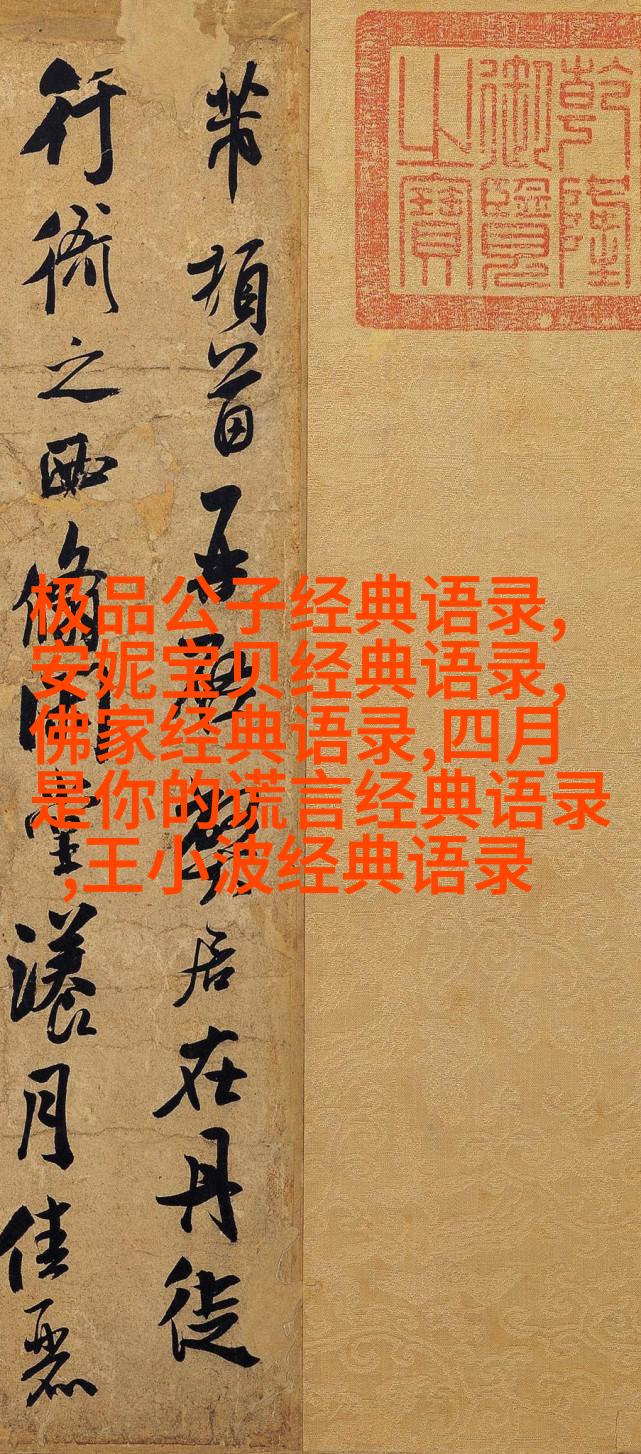 乾隆
御覽
之寶
芾頓首再啓弊居在丹徒
行衙之西脩閒堂漾月佳麗
极品公子经典语录,
安妮宝贝经典语录,
佛家经典语录,四月
是你的谎言经典语录
,王小波经典语录